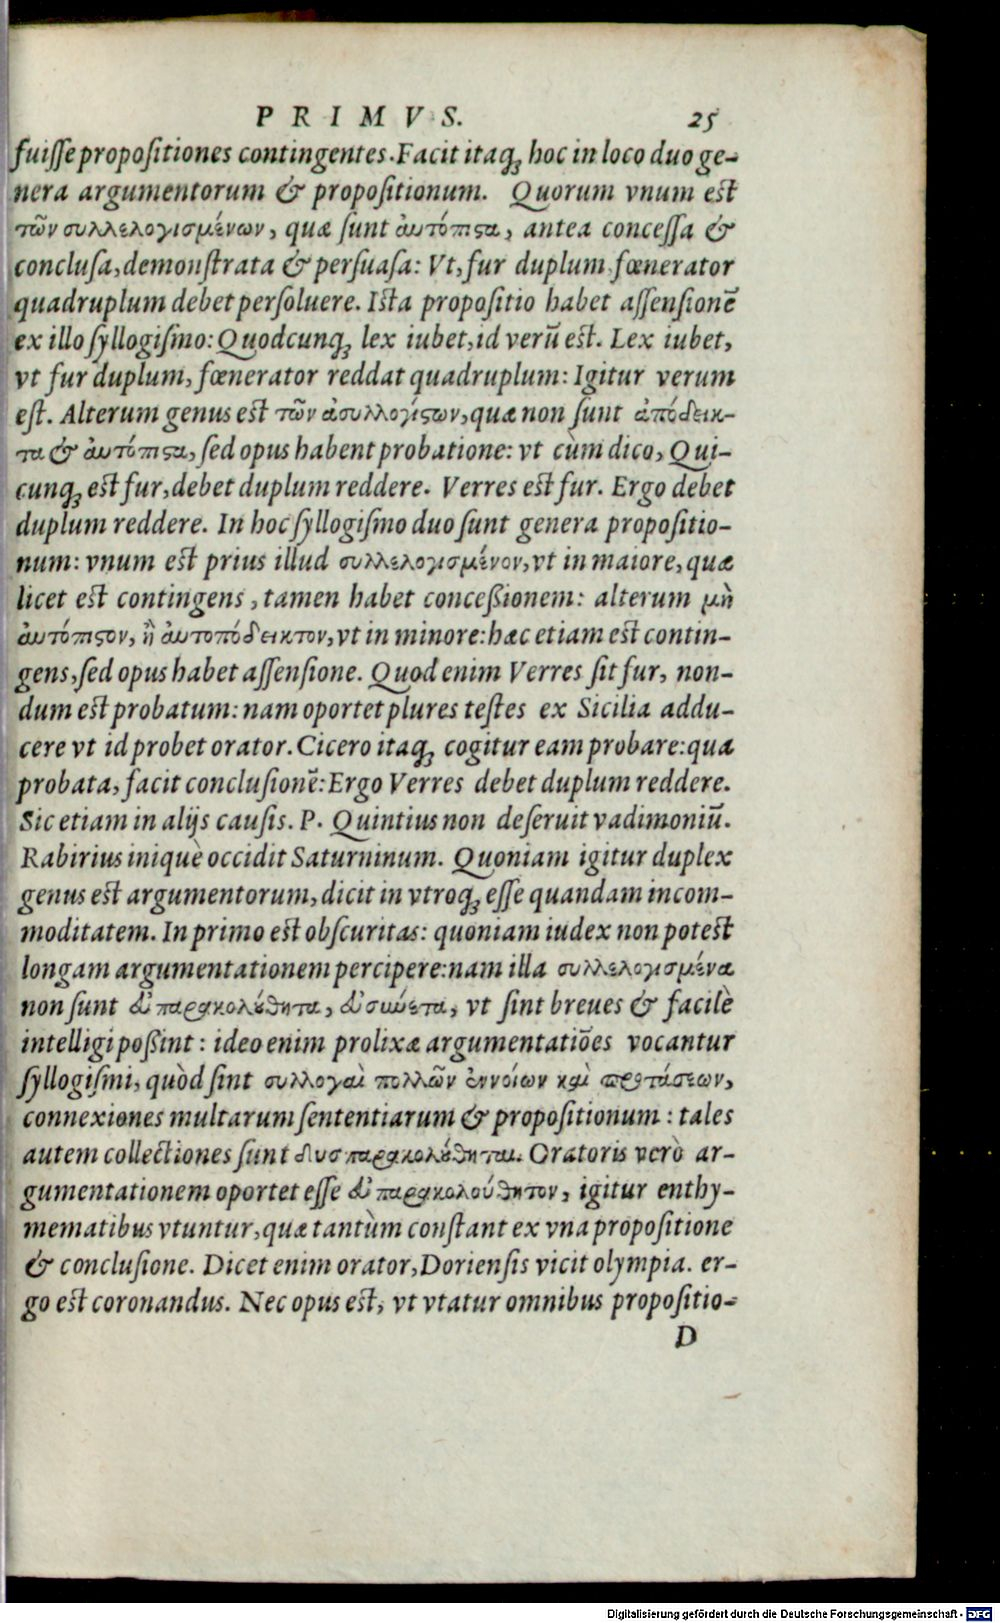 PRIMVS. 25
fuisse propositiones contingentes. Facit itaq; hoc in loco duo ge-
nera argumentorum & propositionum. Quorum vnum est
τῶν συλλελογισμένων, quæ sunt ἀυτόπιϛα, antea concessa &
conclusa, demonstrata & persuasa: Vt, fur duplum, fœnerator
quadruplum debet persoluere. Ista propositio habet assensionē
ex illo syllogismo: Quodcunq; lex iubet, id verū est. Lex iubet,
vt fur duplum, fœnerator reddat quadruplum: Igitur verum
est. Alterum genus est τῶν ἀσυλλογίϛων, quæ non sunt ἀπόδεικ-
τα & ἀυτόπιϛα, sed opus habent probatione: vt cùm dico, Qui-
cunq; est fur, debet duplum reddere. Verres est fur. Ergo debet
duplum reddere. In hoc syllogismo duo sunt genera propositio-
num: vnum est prius illud συλλελογισμένον, vt in maiore, quæ
licet est contingens, tamen habet conceßionem: alterum μὴ
ἀυτόπιϛον, ἢ ἀυτοπόδεικτον, vt in minore: hæc etiam est contin-
gens, sed opus habet assensione. Quod enim Verres sit fur, non-
dum est probatum: nam oportet plures testes ex Sicilia addu-
cere vt id probet orator. Cicero itaq; cogitur eam probare: qua
probata, facit conclusionē: Ergo Verres debet duplum reddere.
Sic etiam in alijs causis. P. Quintius non deseruit vadimoniū.
Rabirius iniquè occidit Saturninum. Quoniam igitur duplex
genus est argumentorum, dicit in vtroq; esse quandam incom-
moditatem. In primo est obscuritas: quoniam iudex non potest
longam argumentationem percipere: nam illa συλλελογισμένα
non sunt ἐυπαρακολȣ́θητα, ἐυσιωύετα, vt sint breues & facilè
intelligi poßint: ideo enim prolixæ argumentatiōes vocantur
syllogismi, quòd sint συλλογαὶ πολλῶν ἐννοίων καὶ προτάσεων,
connexiones multarum sententiarum & propositionum: tales
autem collectiones sunt δυσπαρακολȣ́θηται. Oratoris verò ar-
gumentationem oportet esse ἐυπαρακολούθητον, igitur enthy-
mematibus vtuntur, quæ tantùm constant ex vna propositione
& conclusione. Dicet enim orator, Doriensis vicit olympia. er-
go est coronandus. Nec opus est, vt vtatur omnibus propositio-
D
Digitalisierung gefördert durch die Deutsche Forschungsgemeinschaft - DFG